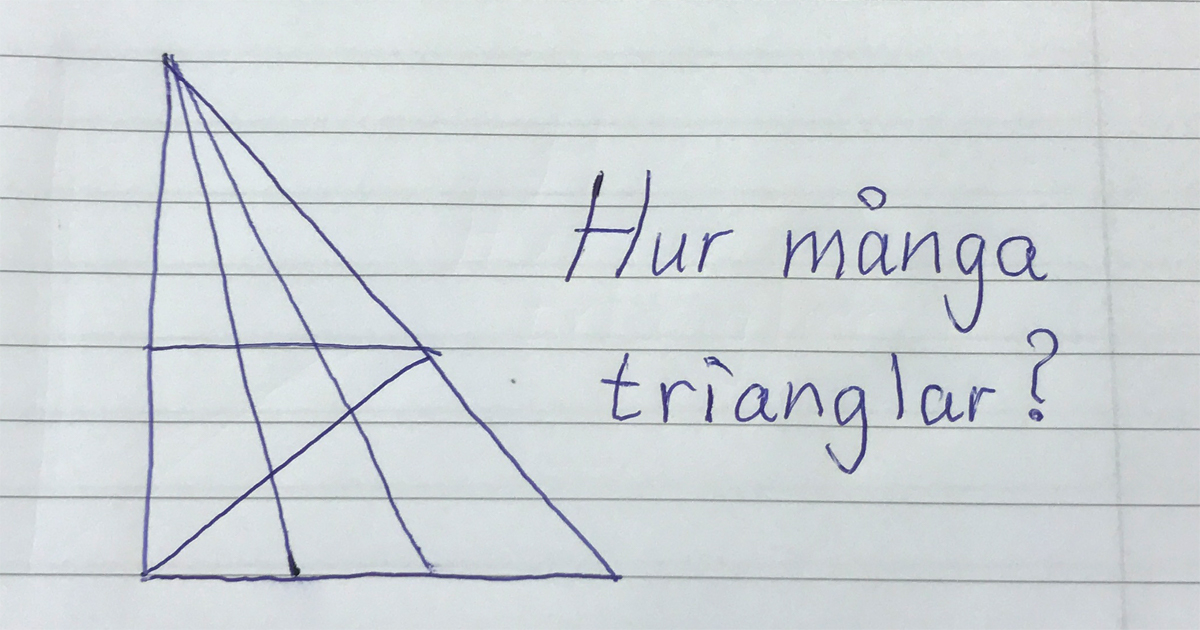 Hur många
trianglar?